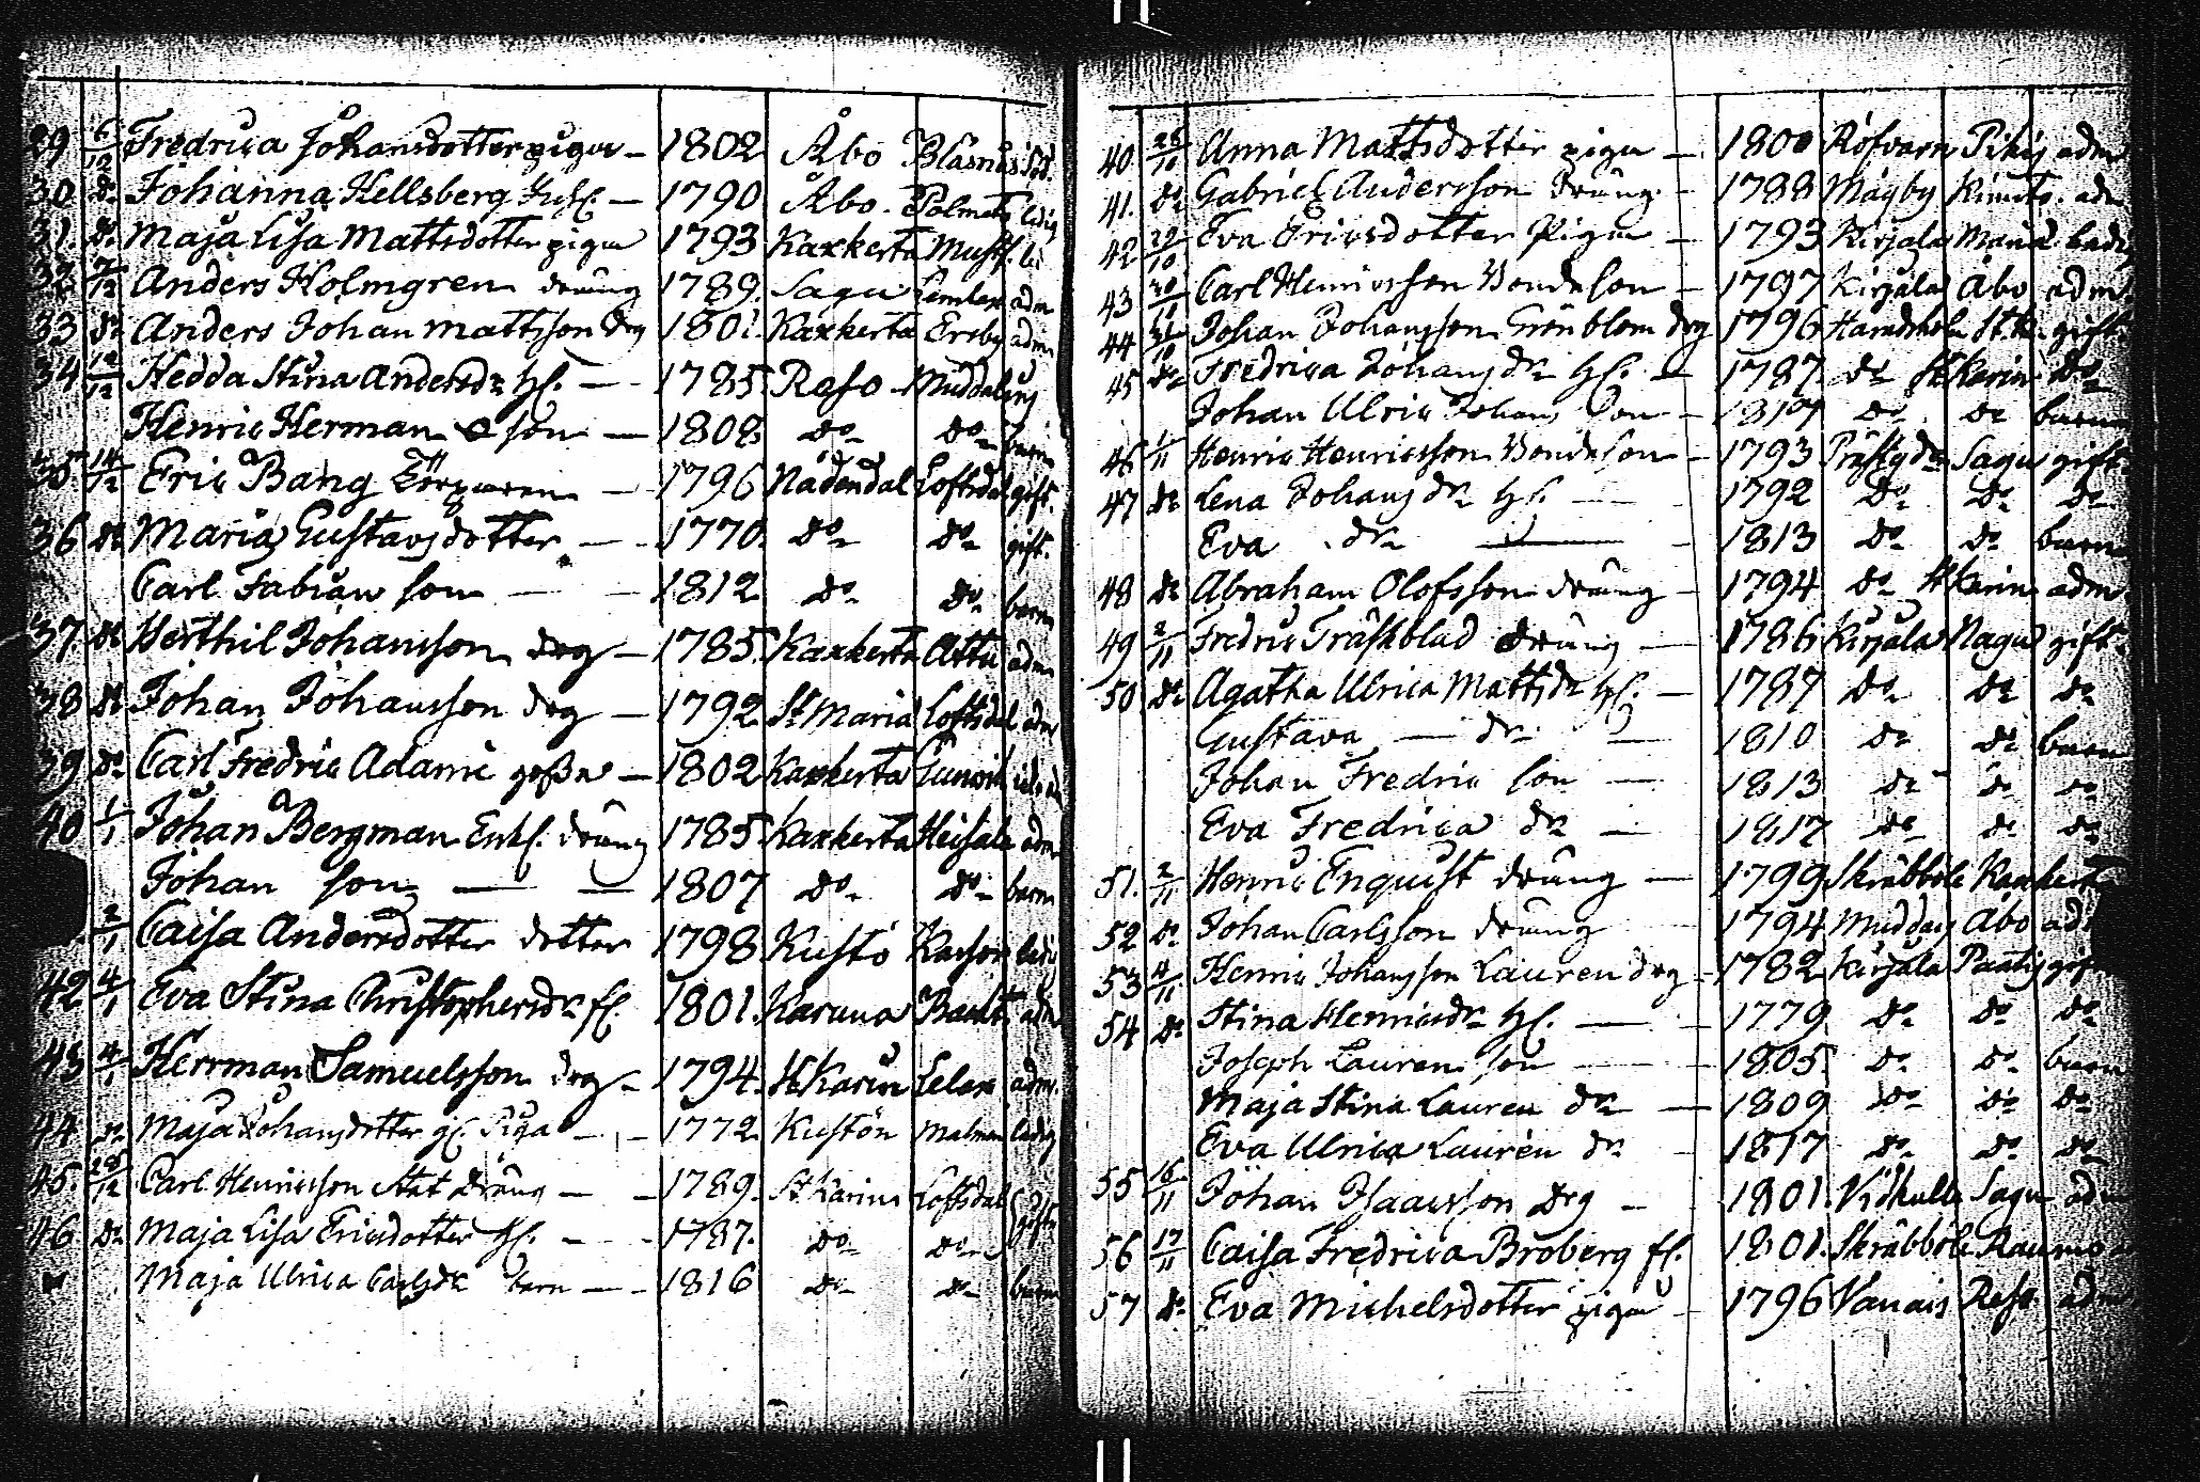 29 6/12 Fredrica Johansdotter piga — 1802 Åbo Blasnäs
30 do Johanna Hellsberg — 1790 Åbo Polmets ledig
31. do Maja Lisa Mattsdotter piga 1793 Kaxkerta
32 7/12 Anders Holmgren dräng 1789. Sagu Lemlax adm
33 do Anders Johan Mattsson drg 1801. Kaxkerta Ersby adm
34 12/12 Hedda Stina Andersdr H. — 1785 Reso Muddais
Henric Herman son — 1808 do do barn
35. 14/12 Eric Bang — 1796 Nådendal Loftsdal gift.
36 do Maria Gustavsdotter — 1770. do do gift.
Carl Fabian son — 1812 do do barn
37. do Berthil Johansson drg — 1785. Kaxkerta Attu adm
38 do Johan Johansson drg — 1792. St Maria Loftsdal adm
39 do Carl Fredric Adami gosse — 1802 Kaxkerta
40 1/1 Johan Bergman Enkl. dräng 1785 Kaxkerta Heisala adm
Johan son — — 1807 do do barn
2/1 Caisa Andersdotter dotter 1798 Kustö ledig
42 4/1 Eva Stina Christophersdr 1801. Karuna adm
43 4/1 Herrman Samuelsson drg — 1794. St Karin Lelax adm.
44 do Maja Johansdotter gl. Piga — 1772. Kustön Malmen ledig
45. 28/12 Carl Henricsson Stat dräng — 1789. St Karins Loftsdal gifte
46 do Maja Lisa Ericsdotter H. — 1787. do do
Maja Ulrica Carlsdr barn — 1816 do do barn
40 28/10 Anna Mattsdotter piga — 1800 Pikis adm
41. do Gabriel Andersson dräng — 1788 Mågby Kimito. adm
42 29/10 Eva Ericsdotter Piga — 1793 Kirjala
43 30/10 Carl Henricsson Bondeson — 1797 Kirjala Åbo adm.
44 31/10 Johan Johansson Grönblom drg 1796 gift.
45 do Fredrica Johansdr H. — 1787. do St Karin do
Johan Ulric Johans Son — do do barn
46 1/11 Henric Henricsson Bondeson — 1793 Sagu gift
47 do Lena Johansdr H. — 1792 do do do
Eva dr — 1813 do do barn
48 do Abraham Olofsson dräng — 1794 do St Karin adm.
49 2/11 Fredric Träskblad dräng — 1786 Kirjala Nagu gift.
50 do Agatha Ulrica Mattsdr H. — 1787 do do do
Gustava — dr — 1810 do do barn
Johan Fredric son — 1813 do do do
Eva Fredrica dr — 1817 do do do
51. 2/11 Henric Enquist dräng — 1799 Skräbböle Kaxkerta
52 do Johan Carlsson dräng 1794 Muddais Åbo adm
53 11/11 Henric Johansson Lauren drg — 1782 Kirjala gift
54 do Stina Henricsdr H. — 1779 do do do
Joseph Lauren son — 1805. do do barn
Maja Stina Lauren dr — 1809 do do do
Eva Ulrica Lauren dr — 1817 do do do
55 16/11 Johan Isaacsson drg — 1801. Vidkulla Sagu adm
56 17/11 Caisa Fredrica Broberg 1801. Skräbböle Raumo
57 do Eva Michelsdotter piga — 1796 Vanais Reso. adm